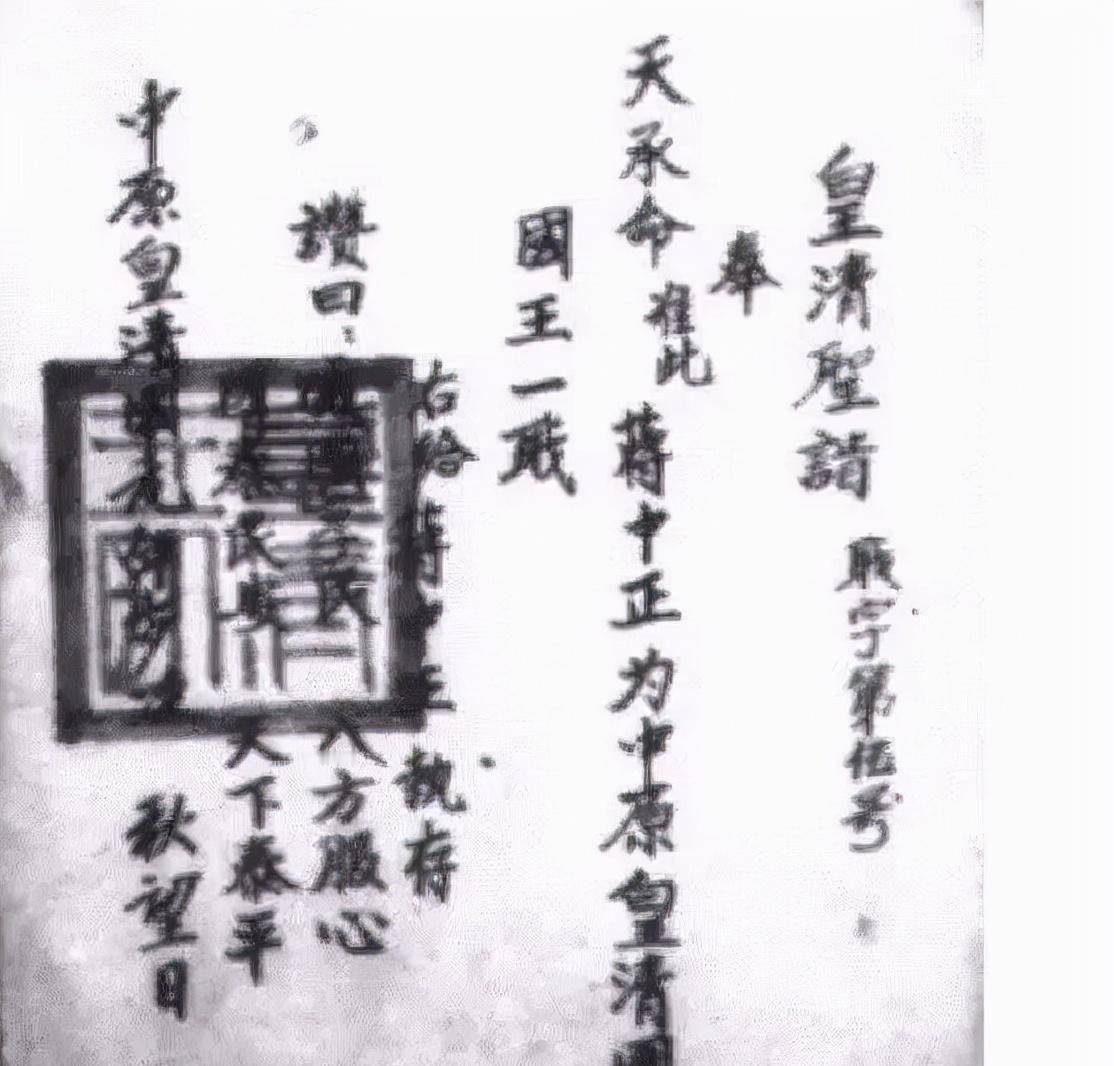 皇清聖詔 職字第伍号
奉
天承命 准此 蔣中正为中原皇清國
國王一職
右給蔣中正 執存
讚曰: 民 八方服心
國泰民安 天下泰平
中原皇清 秋望日